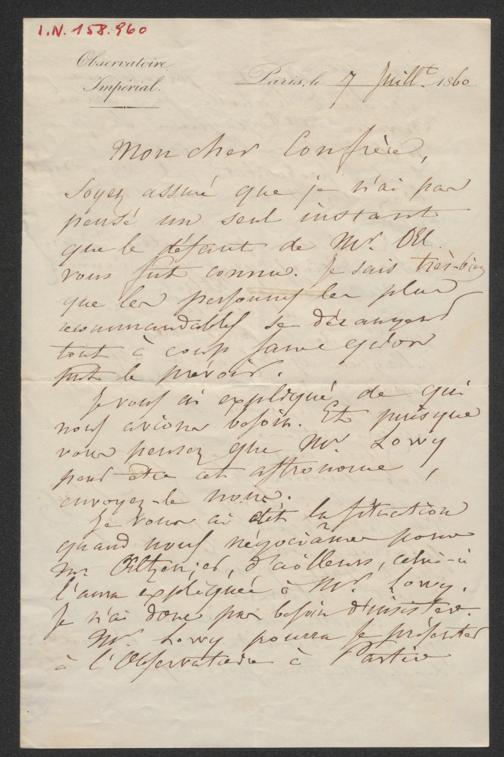 I.N. 158.960
Observatoire
Impérial.
Paris, le 7 Juillt 1860
Mon cher Confrère,
Soyez assuré que je n'ai pas
pensé un seul instant
que le défaut de Mr. Oel.
vous fut connu. Je sais très-bien
que les personnes les plus
recommandables se dérangent
tout à coup sans qu'on
put le prévoir.
Je vous ai expliqué de qui
nous avions besoin. Et puisque
vous pensez que Mr. Lowy
peut être cet astronome,
envoyez-le nous.
Je vous ai dit la situation
quand nous négociâmes pour
Mr. Oeltzen, d'ailleurs, celui-ci
l'aura expliquée à Mr. Lowy.
Je n'ai donc pas besoin d'insister.
Mr. Lowy pourra se présenter
à l'Observatoire à Partir